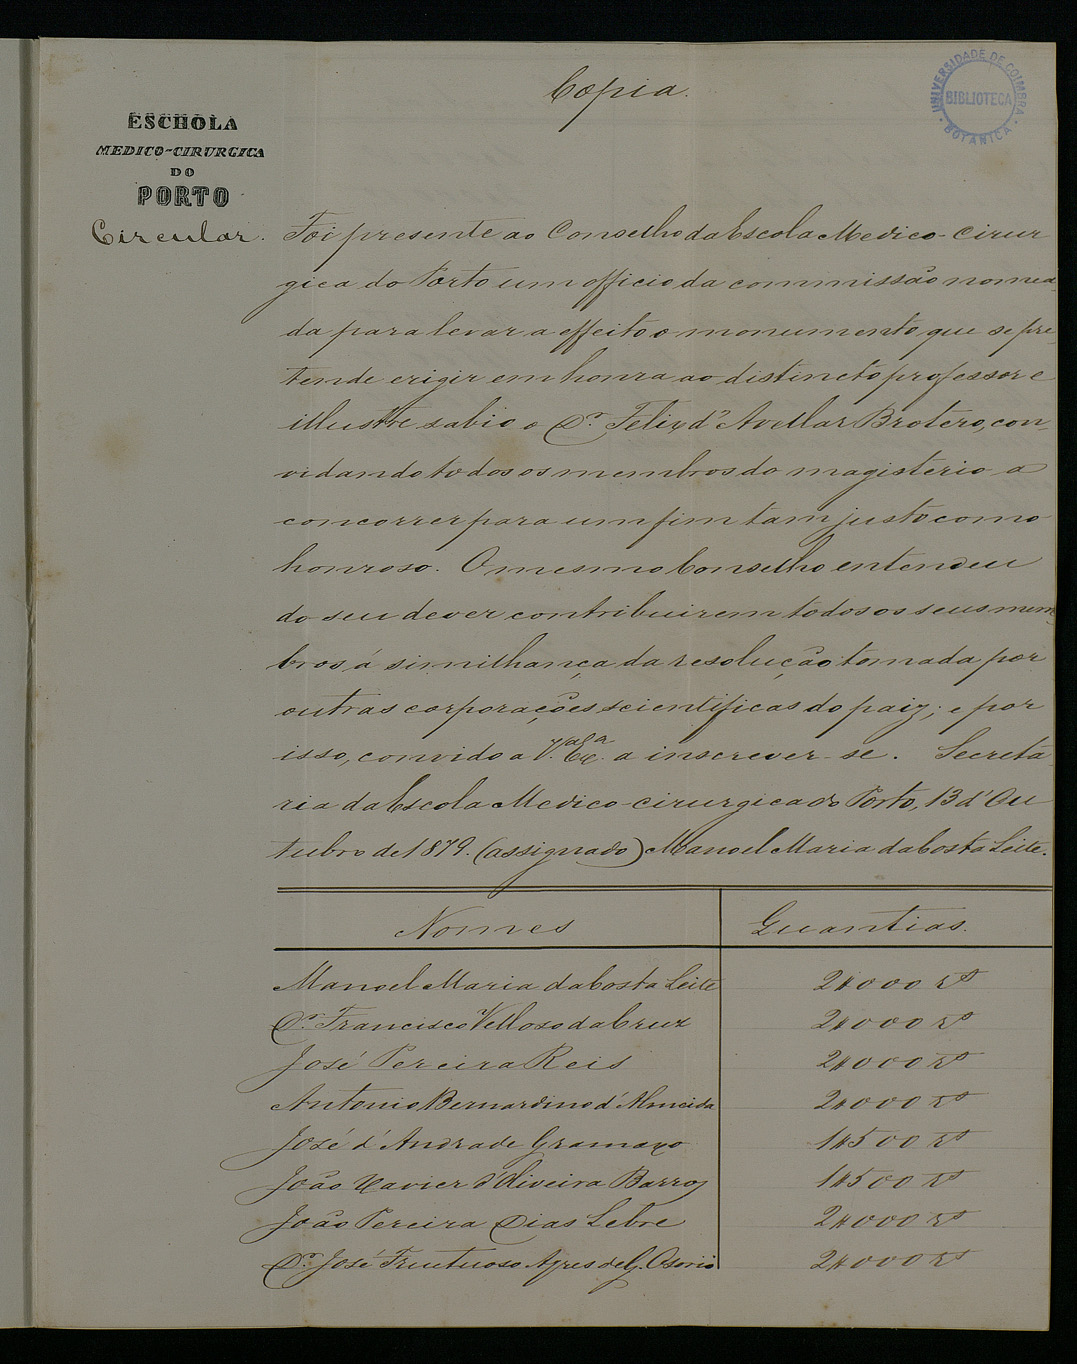 Copia.
UNIVERSIDADE DE COIMBRA
BIBLIOTECA
BOTANICA
ESCHOLA
MEDICO-CIRURGICA
DO
PORTO
Circular.
Foi presente ao Conselho da Escola Medico-Cirur
gica do Porto um officio da commissão nomea-
da para levar a effeito o monumento que se pre-
tende erigir em honra ao distincto professor e
illustre sabio o Dr. Felix d'Avellar Brotero, con-
vidando todos os membros do magisterio a
concorrer para um fim tam justo como
honroso. O mesmo Conselho entendeu
do seu dever contribuirem todos os seus mem-
bros á similhança da resolução tomada por
outras corporações scientificas do paiz; e por
isso, convido a V.ª Ex.ª a inscrever-se. Secreta-
ria da Escola Medico-cirurgica do Porto, 13 d'Ou
tubro de 1879. (assignado) Manoel Maria da Costa Leite.
Nomes Quantias.
Manoel Maria da Costa Leite 2$000 rs
Dr. Francisco Velloso da Cruz 2$000 rs
José Pereira Reis 2$000 rs
Antonio Bernardino d'Almeida 2$000 rs
José d'Andrade Gramaxo 1$500 rs
João Xavier d'Oliveira Barros 1$500 rs
João Pereira Dias Lebre 2$000 rs
Dr. José Fructuoso Ayres de G. Osorio 2$000 rs